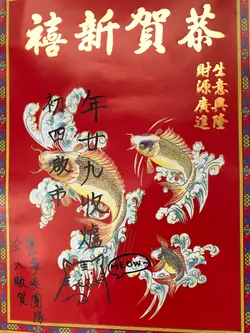 恭賀新禧
生意興隆
財源廣進
年廿九收爐
初四啟市
MEOW